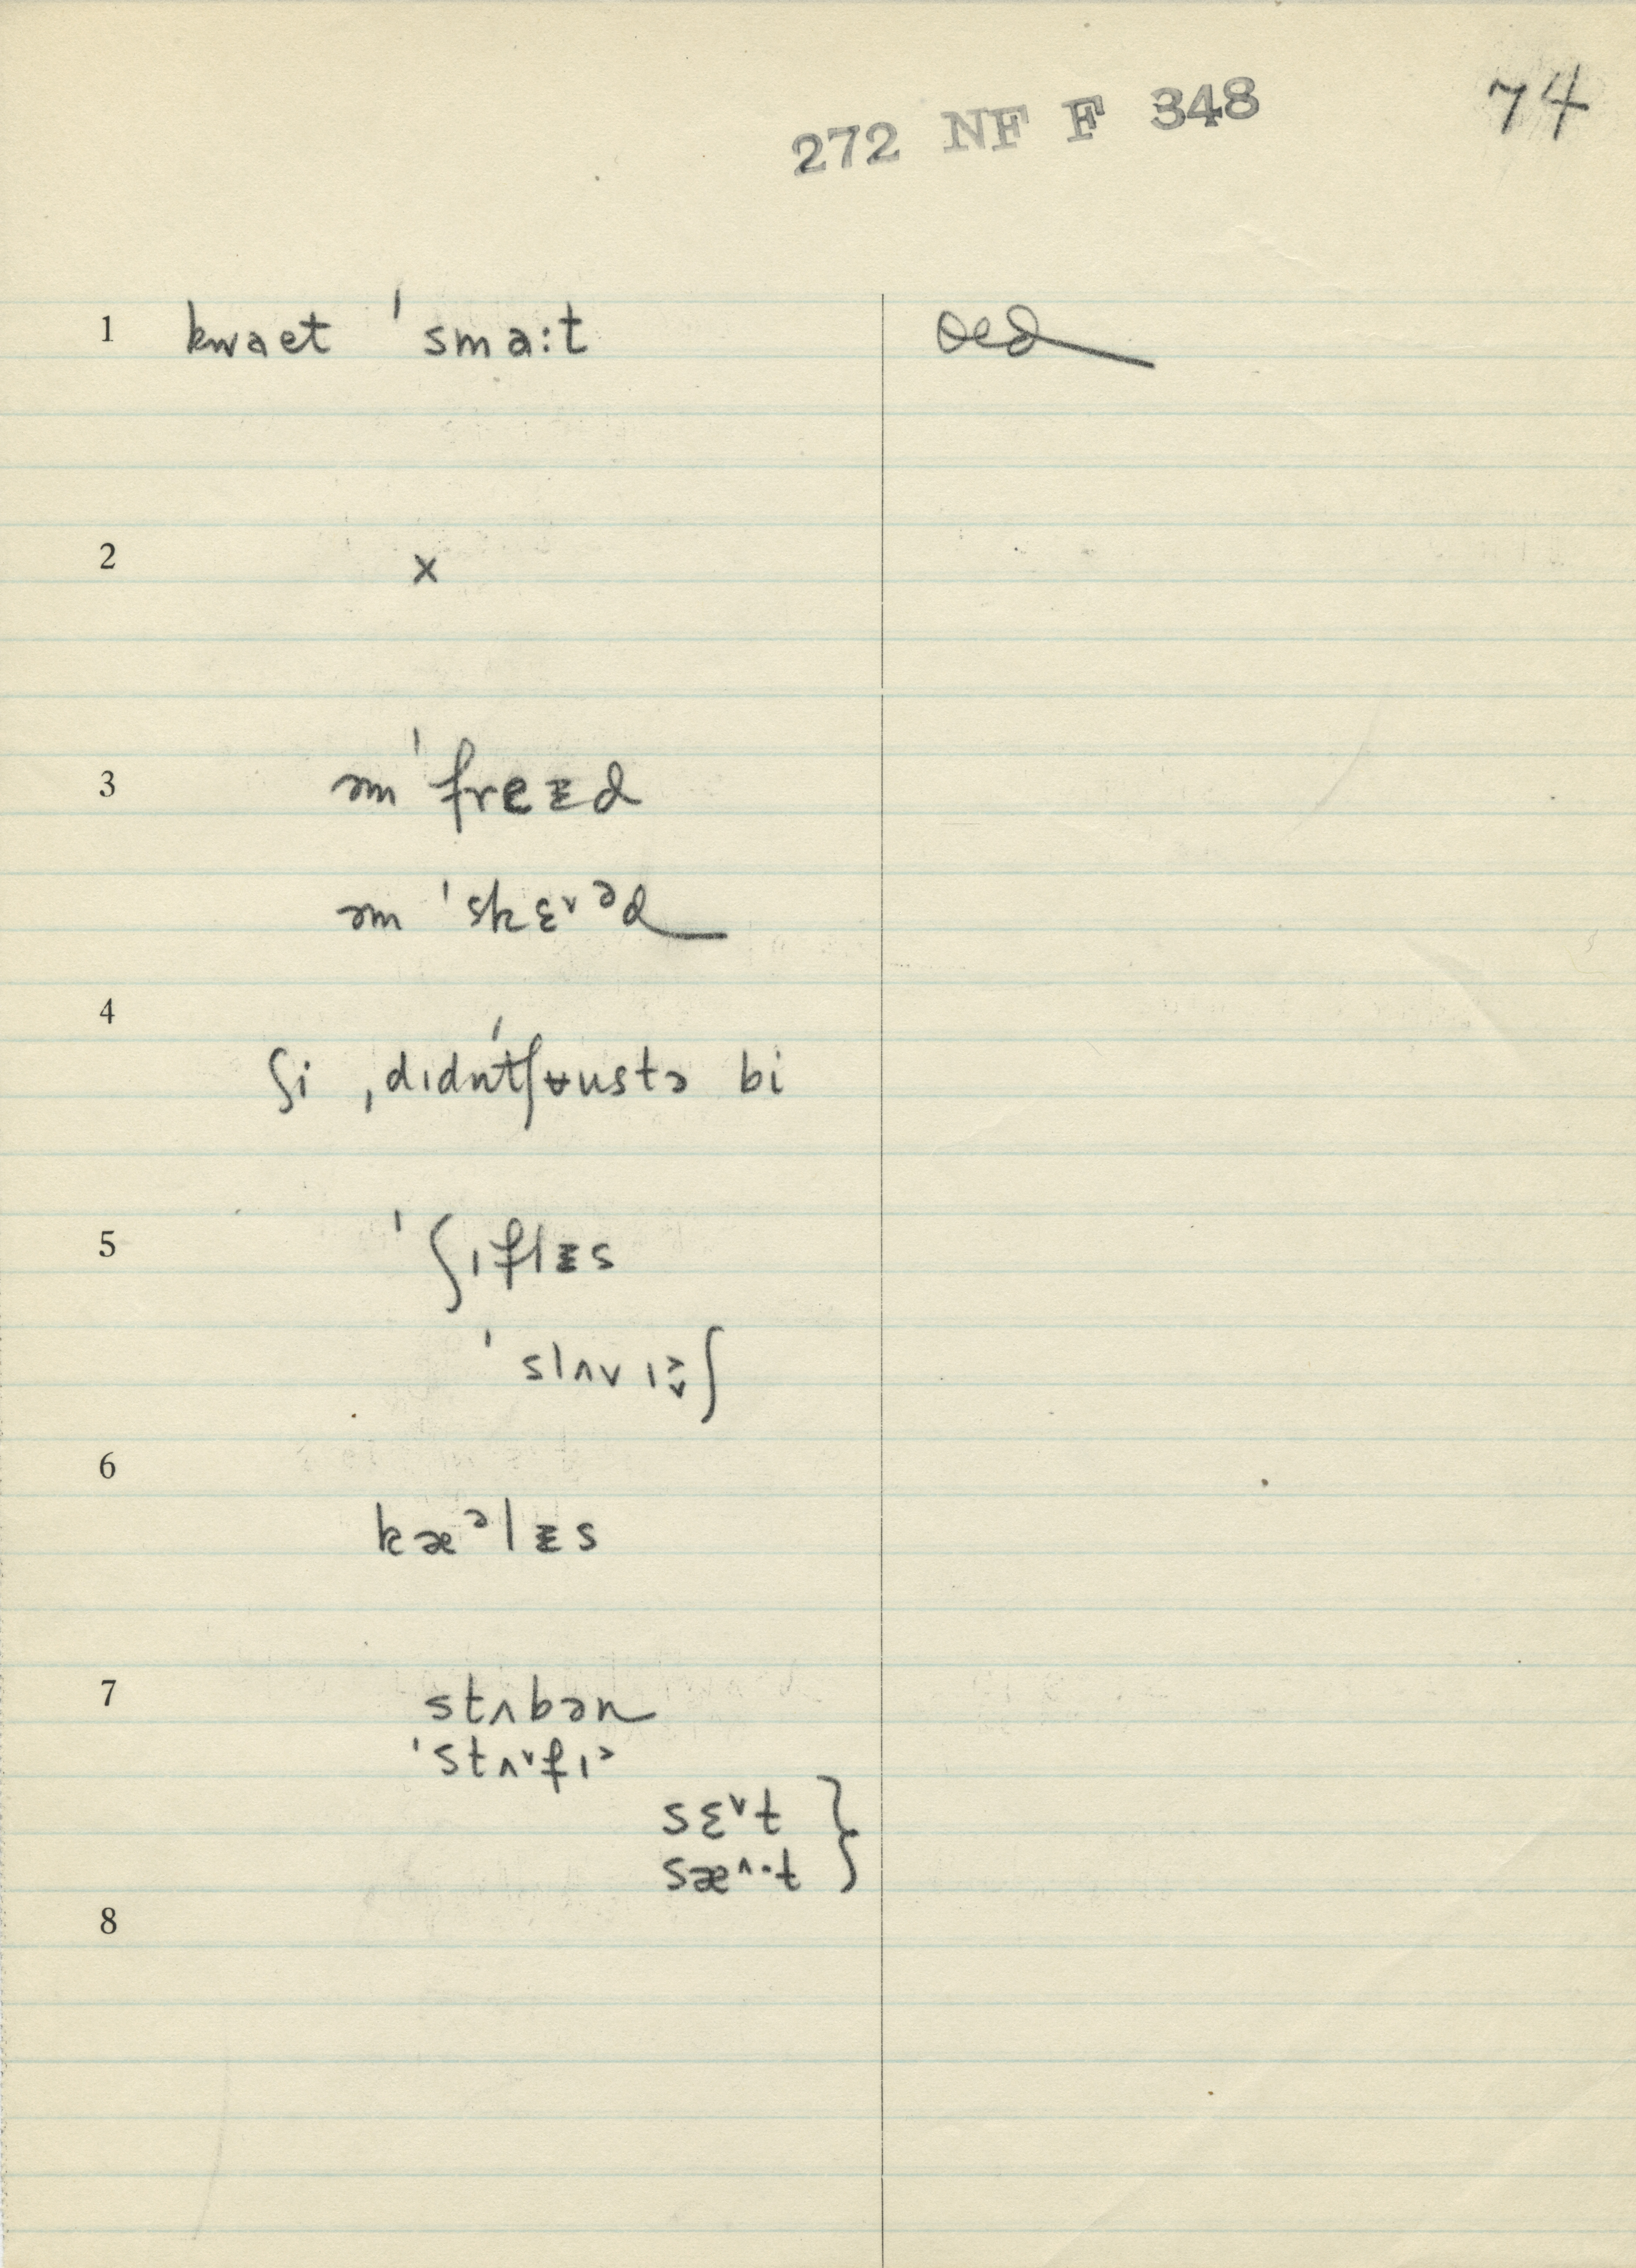 272 NF F 348 74
1 kwaet ˈsmaːt oed
2 x
3 əm ˈfreᵻd
əm ˈskɛ˅ᵊd
4 ʃi ˌdɪdn̍tʃustə bi
5 ˈʃɪflᵻs
ˈslʌvɪʃ
6 kæᵊlᵻs
7 stʌbən
ˈstʌ˅fɪ˃
sɛ˅t }
sæ˄·t
8